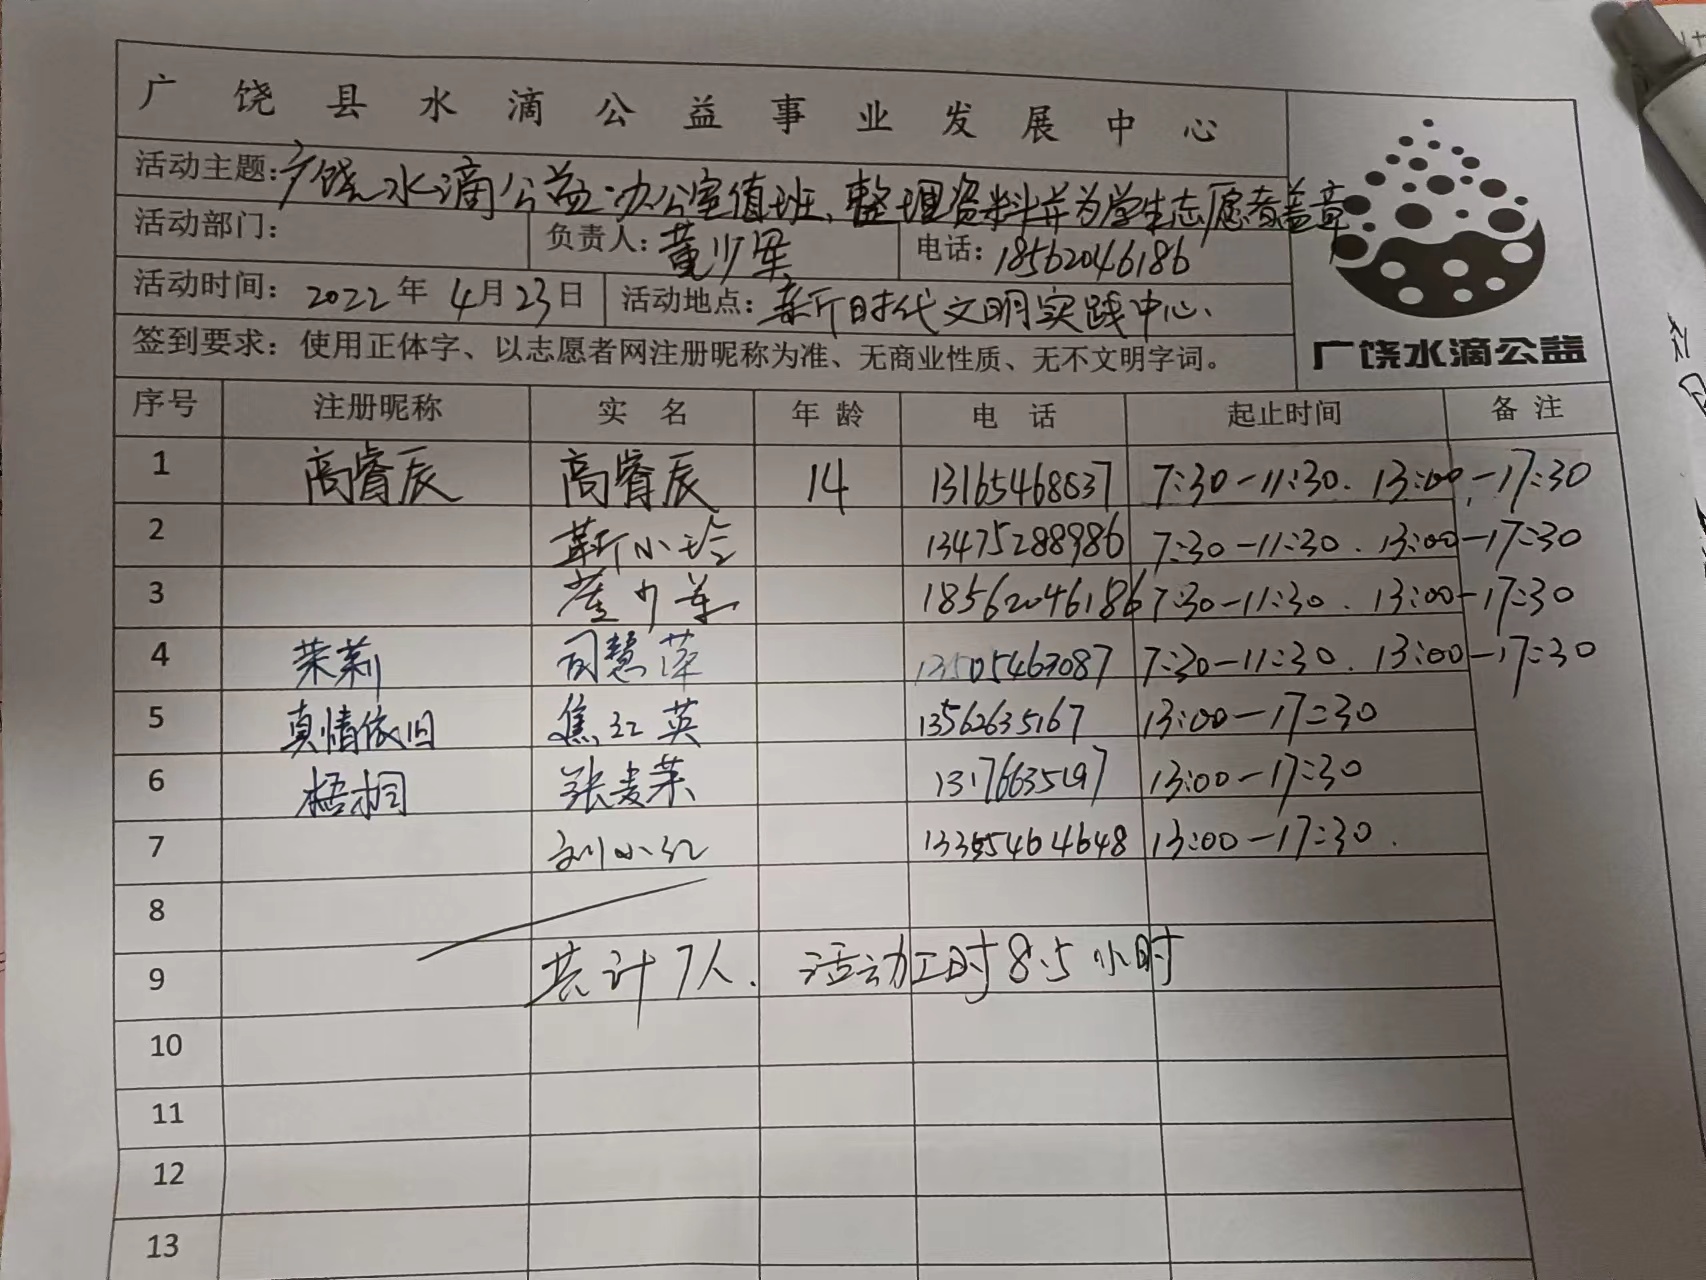 广饶县水滴公益事业发展中心
活动主题:广饶水滴公益·办公室值班、整理资料并为学生志愿者盖章
活动部门: 负责人:黄少军 电话:18562046186
活动时间:2022年4月23日 活动地点:新时代文明实践中心.
广饶水滴公益
签到要求:使用正体字、以志愿者网注册昵称为准、无商业性质、无不文明字词。
序号 注册昵称 实名 年龄 电话 起止时间 备注
1 高睿辰 高睿辰 14 13165468637 7:30-11:30. 13:00-17:30
2 靳小玲 13475288986 7:30-11:30. 13:00-17:30
3 少军 18562046186 7:30-11:30. 13:00-17:30
4 茉莉 司慧萍 13505463087 7:30-11:30. 13:00-17:30
5 真情依旧 焦红英 13562635167 13:00-17:30
6 梧桐 张荣 13176635197 13:00-17:30
7 刘小红 13:00-17:30.
8
9 共计7人. 活动工时8.5小时
10
11
12
13